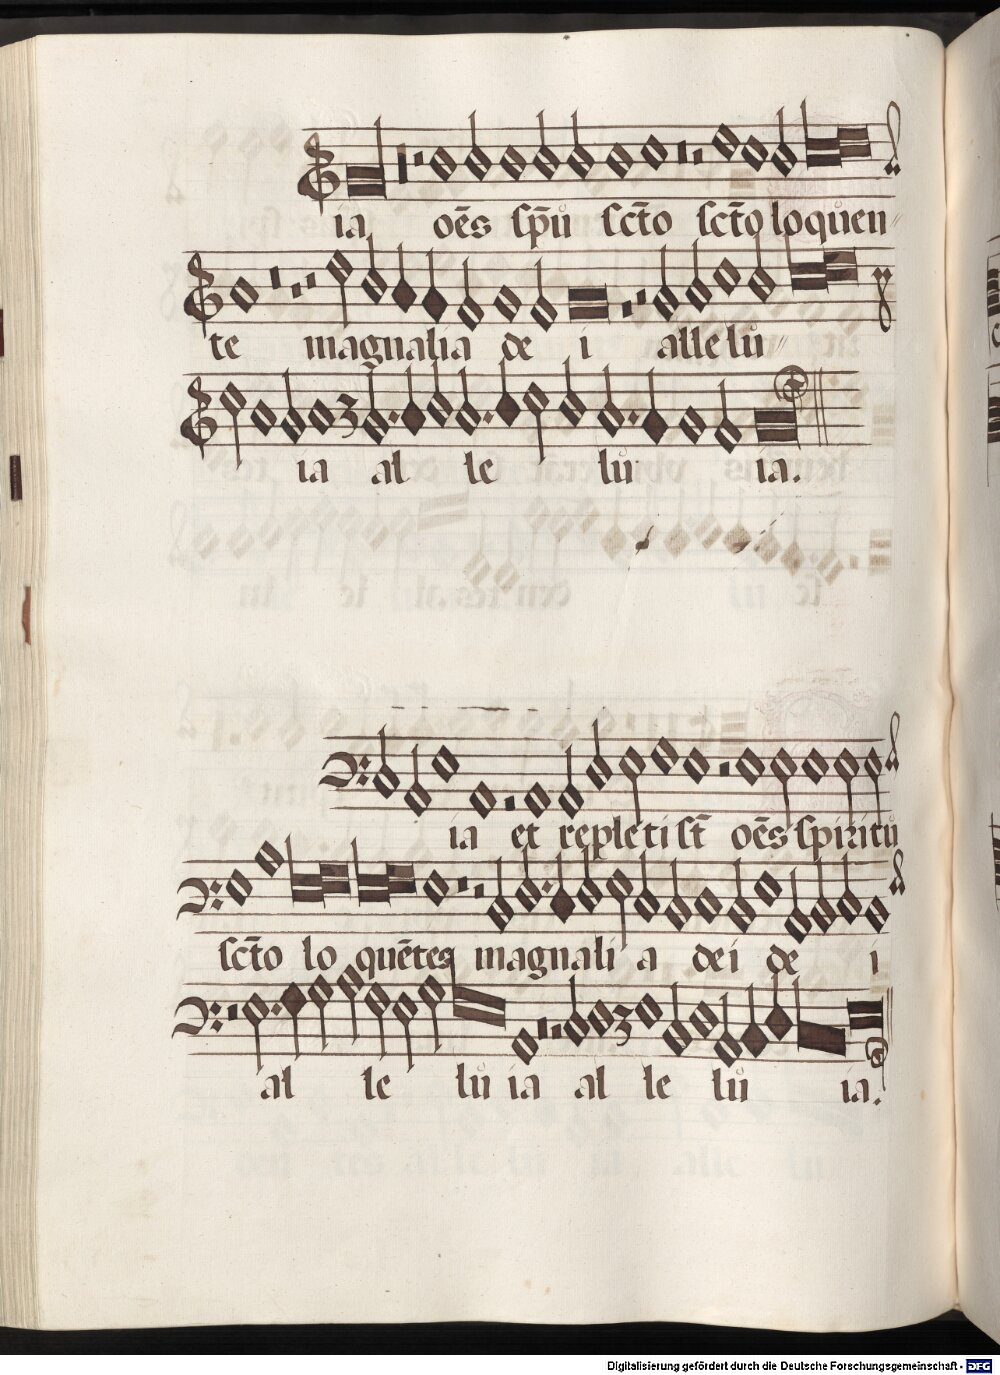 ia oēs sp̄ū sct̄o sct̄o loquen
te magnalia de i allelu
ia al le lu ia.
ia et repleti st̄ oēs spiritu
sct̄o lo quētes magnali a dei de i
al le lu ia al le lu ia.
Digitalisierung gefördert durch die Deutsche Forschungsgemeinschaft - DFG